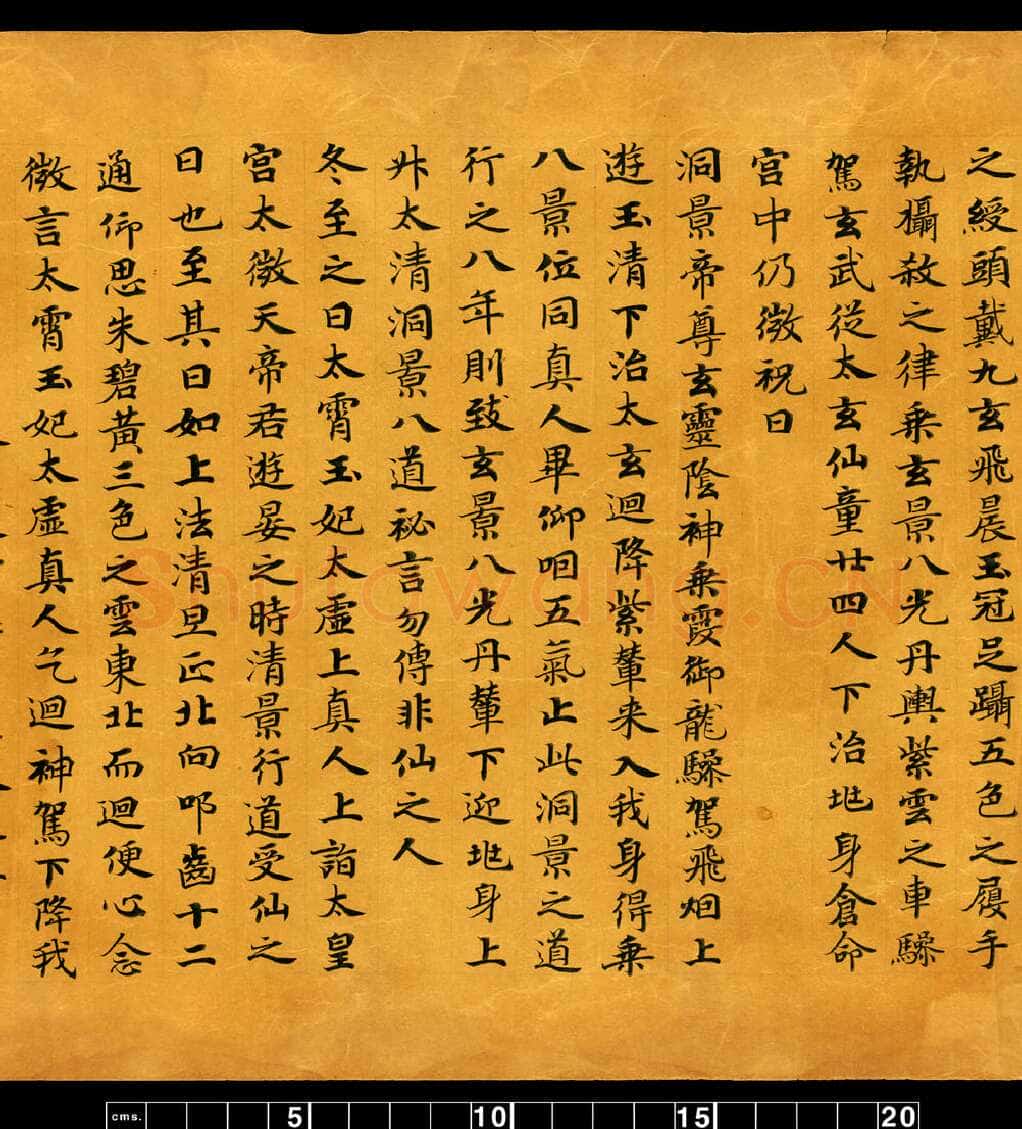 之綬頭戴九玄飛晨玉冠足躡五色之履手
執攝殺之律乗玄景八光丹輿紫雲之車驂
駕玄武從太玄仙童廿四人下治埊身倉命
宮中仍微祝曰
洞景帝尊玄靈陰神乗霞御龍驂駕飛烟上
遊玉清下治太玄迴降紫輦来入我身得乗
八景位同真人畢仰咽五氣止此洞景之道
行之八年則致玄景八光丹輦下迎埊身上
升太清洞景八道祕言勿傳非仙之人
冬至之日太霄玉妃太虛上真人上詣太皇
宮太微天帝君遊晏之時清景行道受仙之
日也至其日如上法清旦正北向叩齒十二
通仰思朱碧黃三色之雲東北而迴便心念
微言太霄玉妃太虛真人乞迴神駕下降我
Shufawang.CN
cms. 5 10 15 20